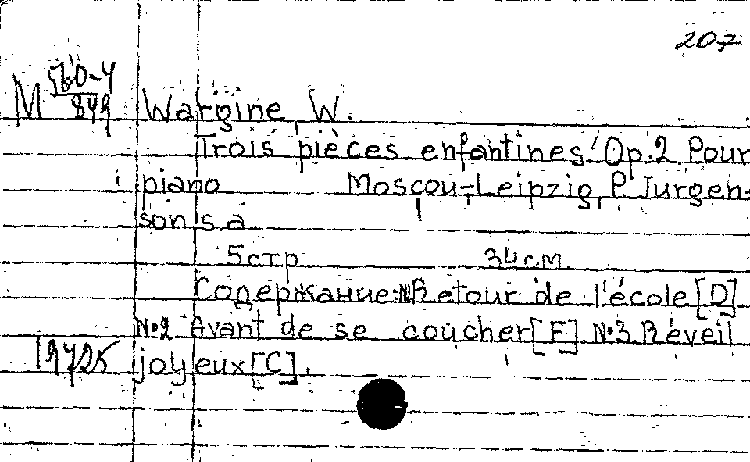 207
М 560-4/849
Wargine, W.
Trois pièces enfantines. Op.2 Pour
piano Moscou-Leipzig, P. Jurgen-
son s.a
5 стр. 34 см.
Содержание: №1 Retour de l'école [D]
№2 Avant de se coucher [F] №3 Réveil
19725 joyeux [C].